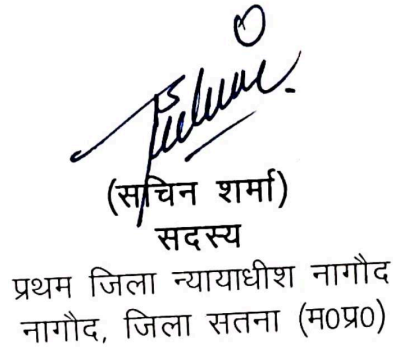 (सचिन शर्मा)
सदस्य
प्रथम जिला न्यायाधीश नागौद
नागौद, जिला सतना (म0प्र0)